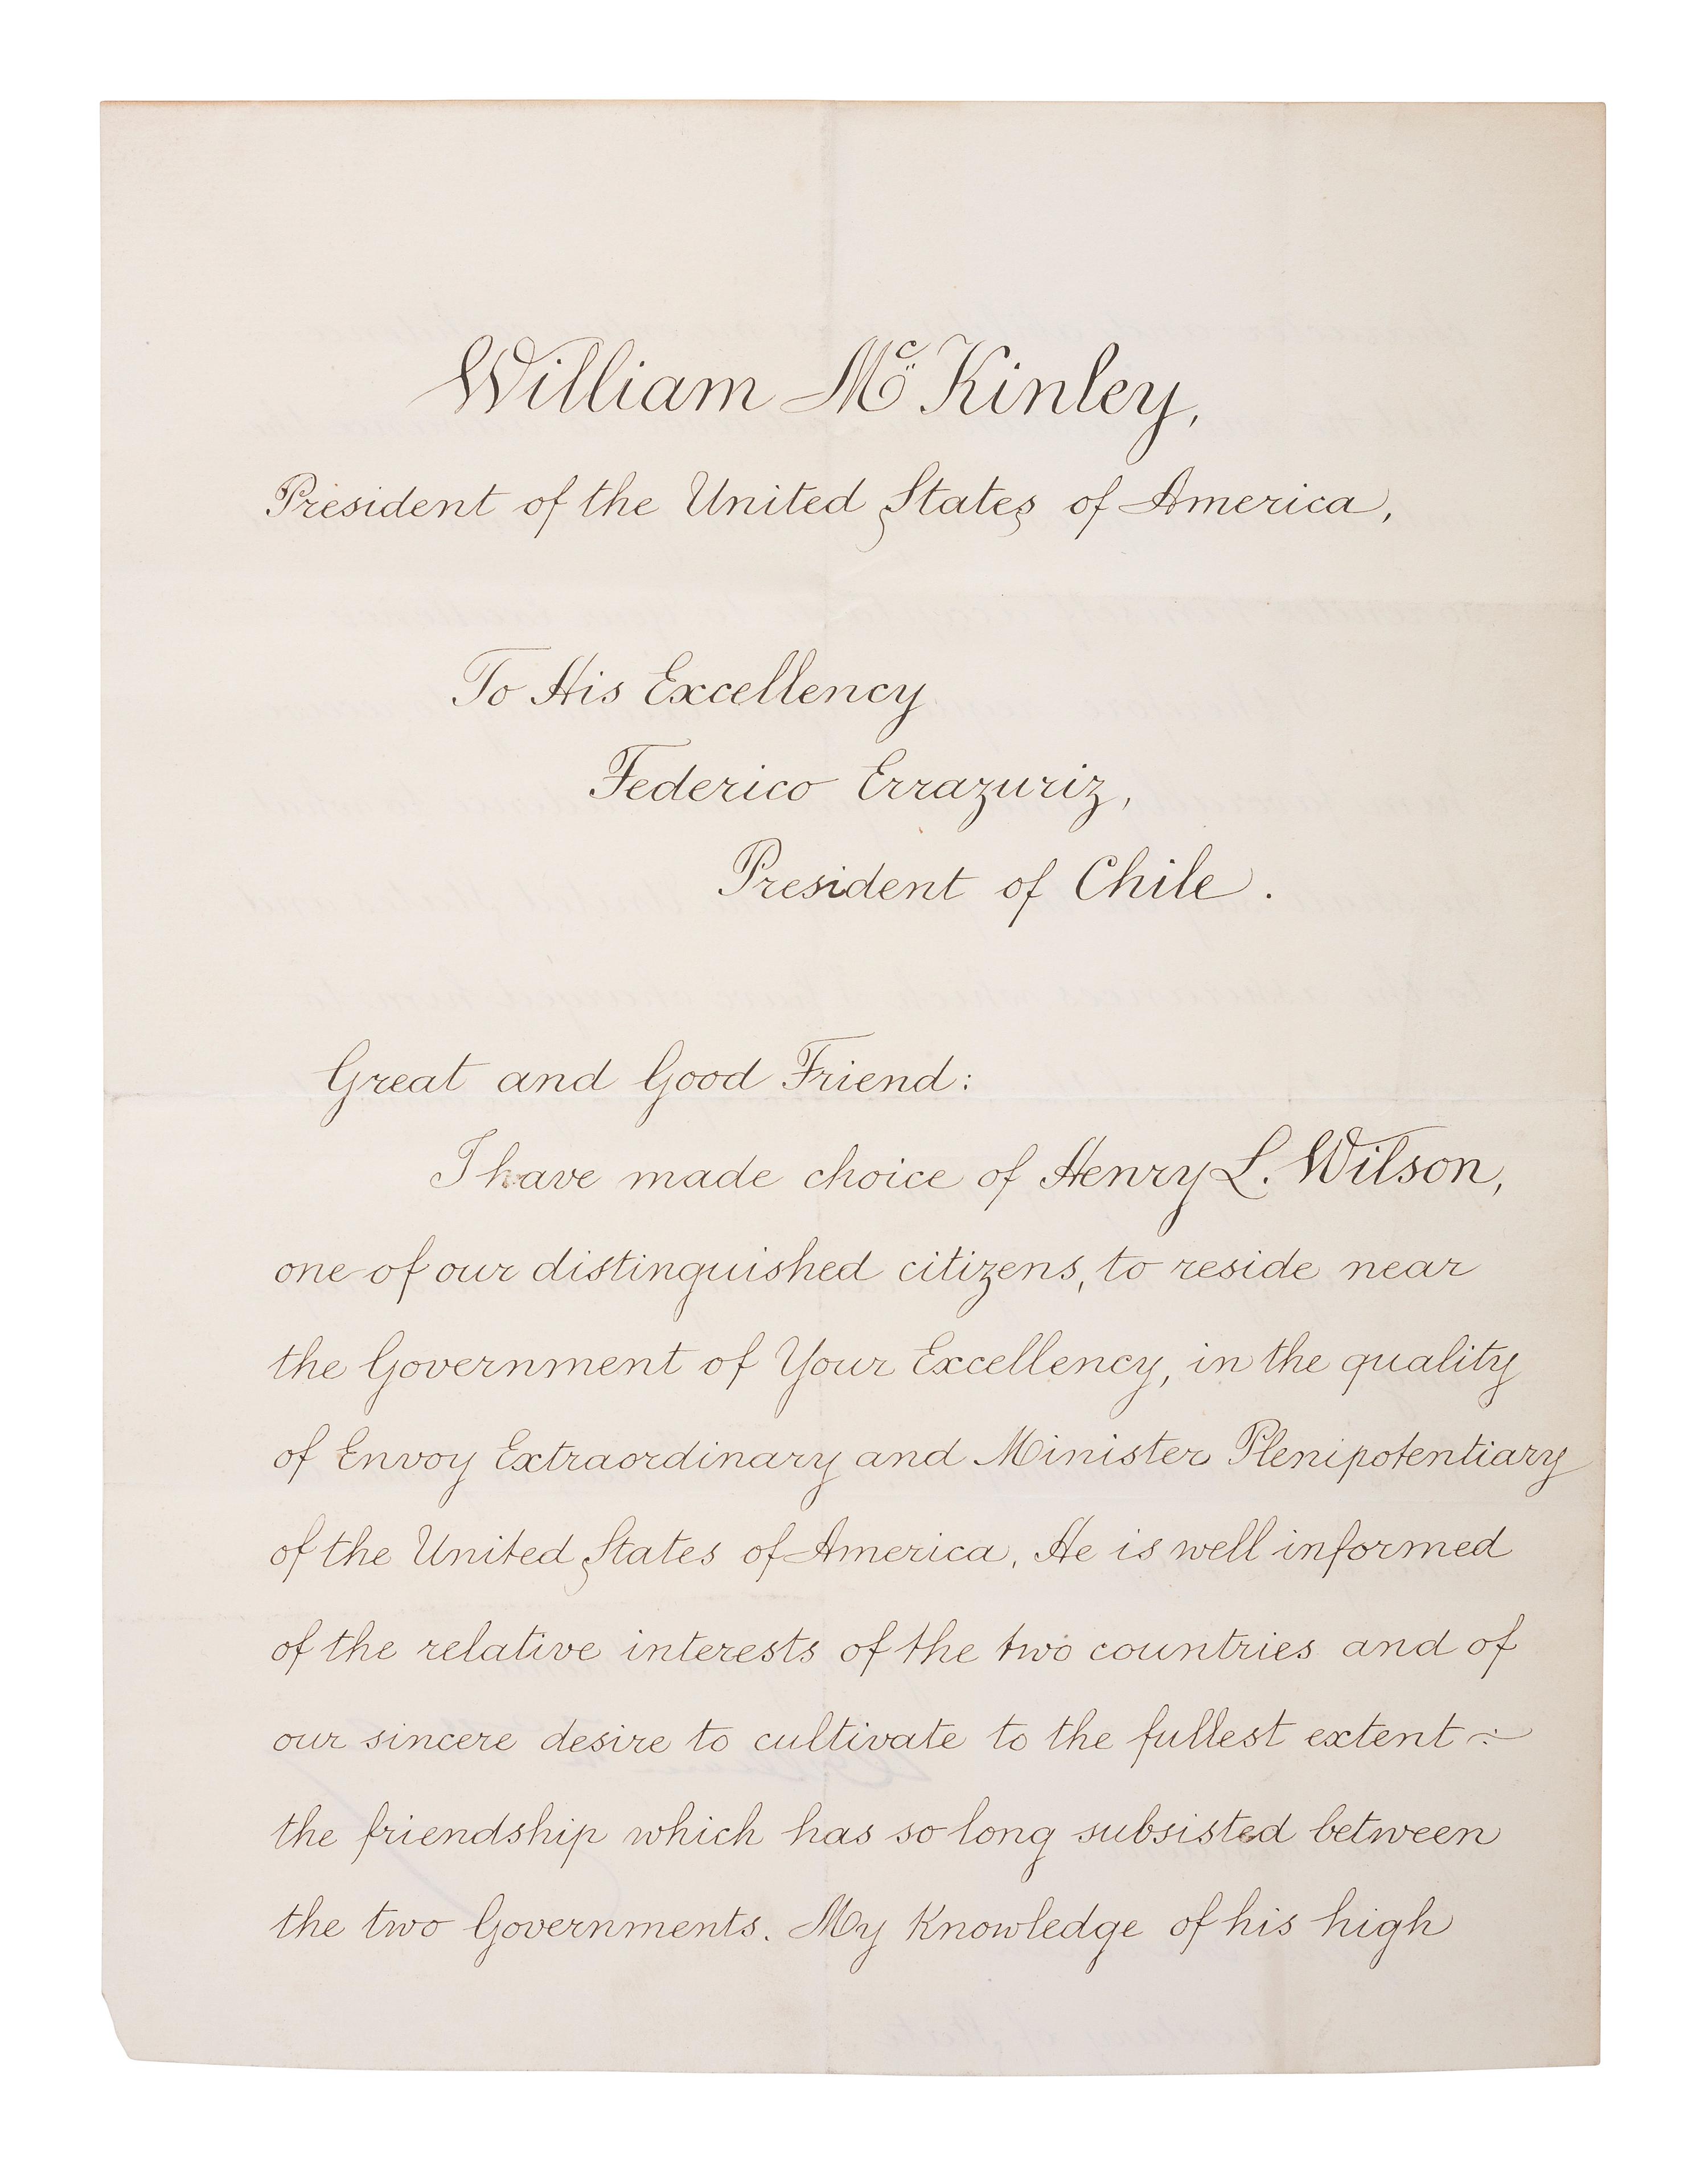 William Mc Kinley,
President of the United States of America,
To His Excellency
Federico Errazuriz,
President of Chile.
Great and Good Friend:
I have made choice of Henry L. Wilson,
one of our distinguished citizens, to reside near
the Government of Your Excellency, in the quality
of Envoy Extraordinary and Minister Plenipotentiary
of the United States of America. He is well informed
of the relative interests of the two countries and of
our sincere desire to cultivate to the fullest extent
the friendship which has so long subsisted between
the two Governments. My Knowledge of his high